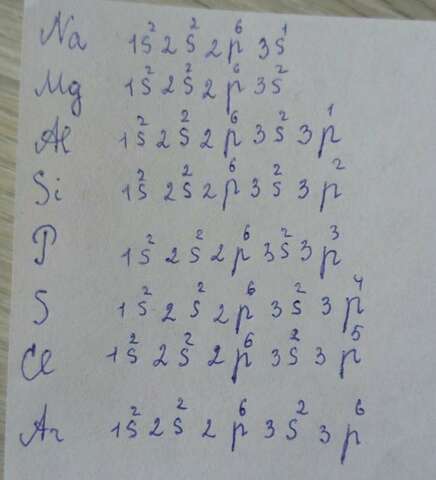 Na 1s² 2s² 2p⁶ 3s¹
Mg 1s² 2s² 2p⁶ 3s²
Al 1s² 2s² 2p⁶ 3s² 3p¹
Si 1s² 2s² 2p⁶ 3s² 3p²
P 1s² 2s² 2p⁶ 3s² 3p³
S 1s² 2s² 2p⁶ 3s² 3p⁴
Cl 1s² 2s² 2p⁶ 3s² 3p⁵
Ar 1s² 2s² 2p⁶ 3s² 3p⁶